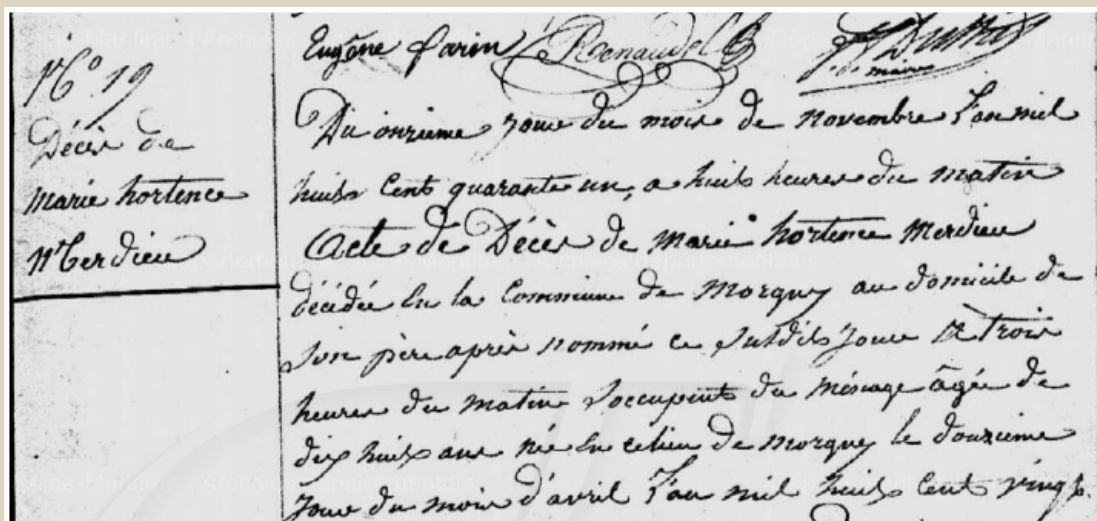 Eugène farin Renaudel
maire
N° 19
Décès de
marie hortence
Merdieu
Du onzieme jour du mois de novembre l'an mil
huit Cent quarante un, a huit heures du matin
Acte de Décès de marie hortence Merdieu
décédée en la Commune de morgny au domicile de
son père après nommé ce susdit jour à trois
heures du matin s'occupent du ménage âgée de
dix huit ans née en ce lieu de morgny le douzieme
jour du mois d'avril l'an mil huit Cent vingt